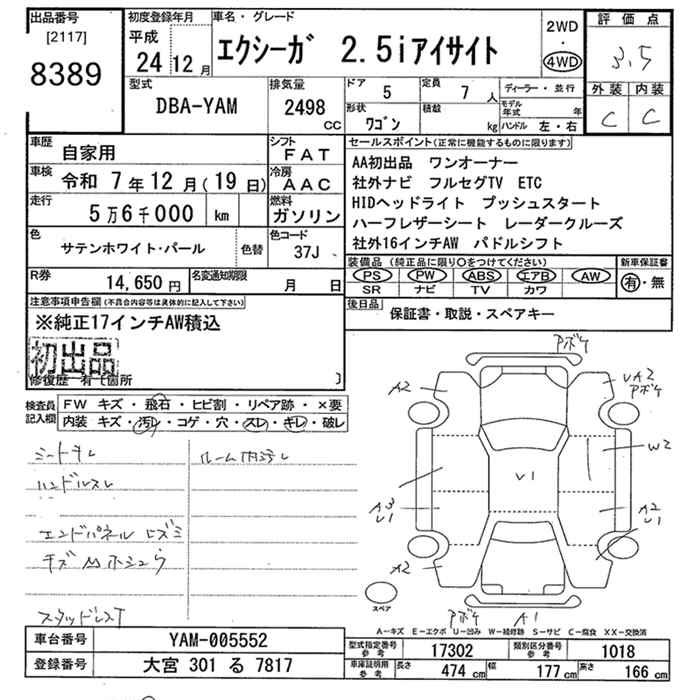 出品番号
[2117]
8389
初度登録年月
平成
24 12月
車名・グレード
エクシーガ 2.5iアイサイト
2WD
・
4WD
評価点
3.5
外装 内装
C C
型式
DBA-YAM
排気量
2498
CC
ドア
5
定員
7 人
形状
ワゴン
積載
kg
ディーラー・並行
モデル年式
年
ハンドル 左・右
車歴
自家用
シフト
FAT
車検
令和 7年12月(19日)
冷房
AAC
走行
5万6千000 km
燃料
ガソリン
色
サテンホワイト・パール
色替
色コード
37J
R券
14,650円
名変通知期限
月 日
セールスポイント(正常に機能するものに限ります)
AA初出品 ワンオーナー
社外ナビ フルセグTV ETC
HIDヘッドライト プッシュスタート
ハーフレザーシート レーダークルーズ
社外16インチAW パドルシフト
装備品(純正品に限り○をつけてください)
PS PW ABS エアB AW
SR ナビ TV カワ
新車保証書
有・無
後日品
保証書・取説・スペアキー
注意事項申告欄(不具合内容等は具体的に記入して下さい)
※純正17インチAW積込
初出品
修復歴 有(箇所 )
検査員記入欄
FW キズ・飛石・ヒビ割・リペア跡・×要
内装 キズ・汚レ・コゲ・穴・スレ・キレ・破レ
シートキレ
ルーム内汚レ
ハンドルスレ
エンドパネル ヒズミ
キズ
スタッドレス
アボケ
A2
UA2
アボケ
W2
U1
A3
U1
A2
U1
A2
A2
スペア
アボケ
A1
A−キズ E−エクボ U−凹み W−補修跡 S−サビ C−腐食 XX−交換済
車台番号
YAM-005552
登録番号
大宮 301 る 7817
型式指定番号
参考
17302
類別区分番号
参考
1018
車庫証明用
参考
長さ
474 cm
幅
177 cm
高さ
166 cm